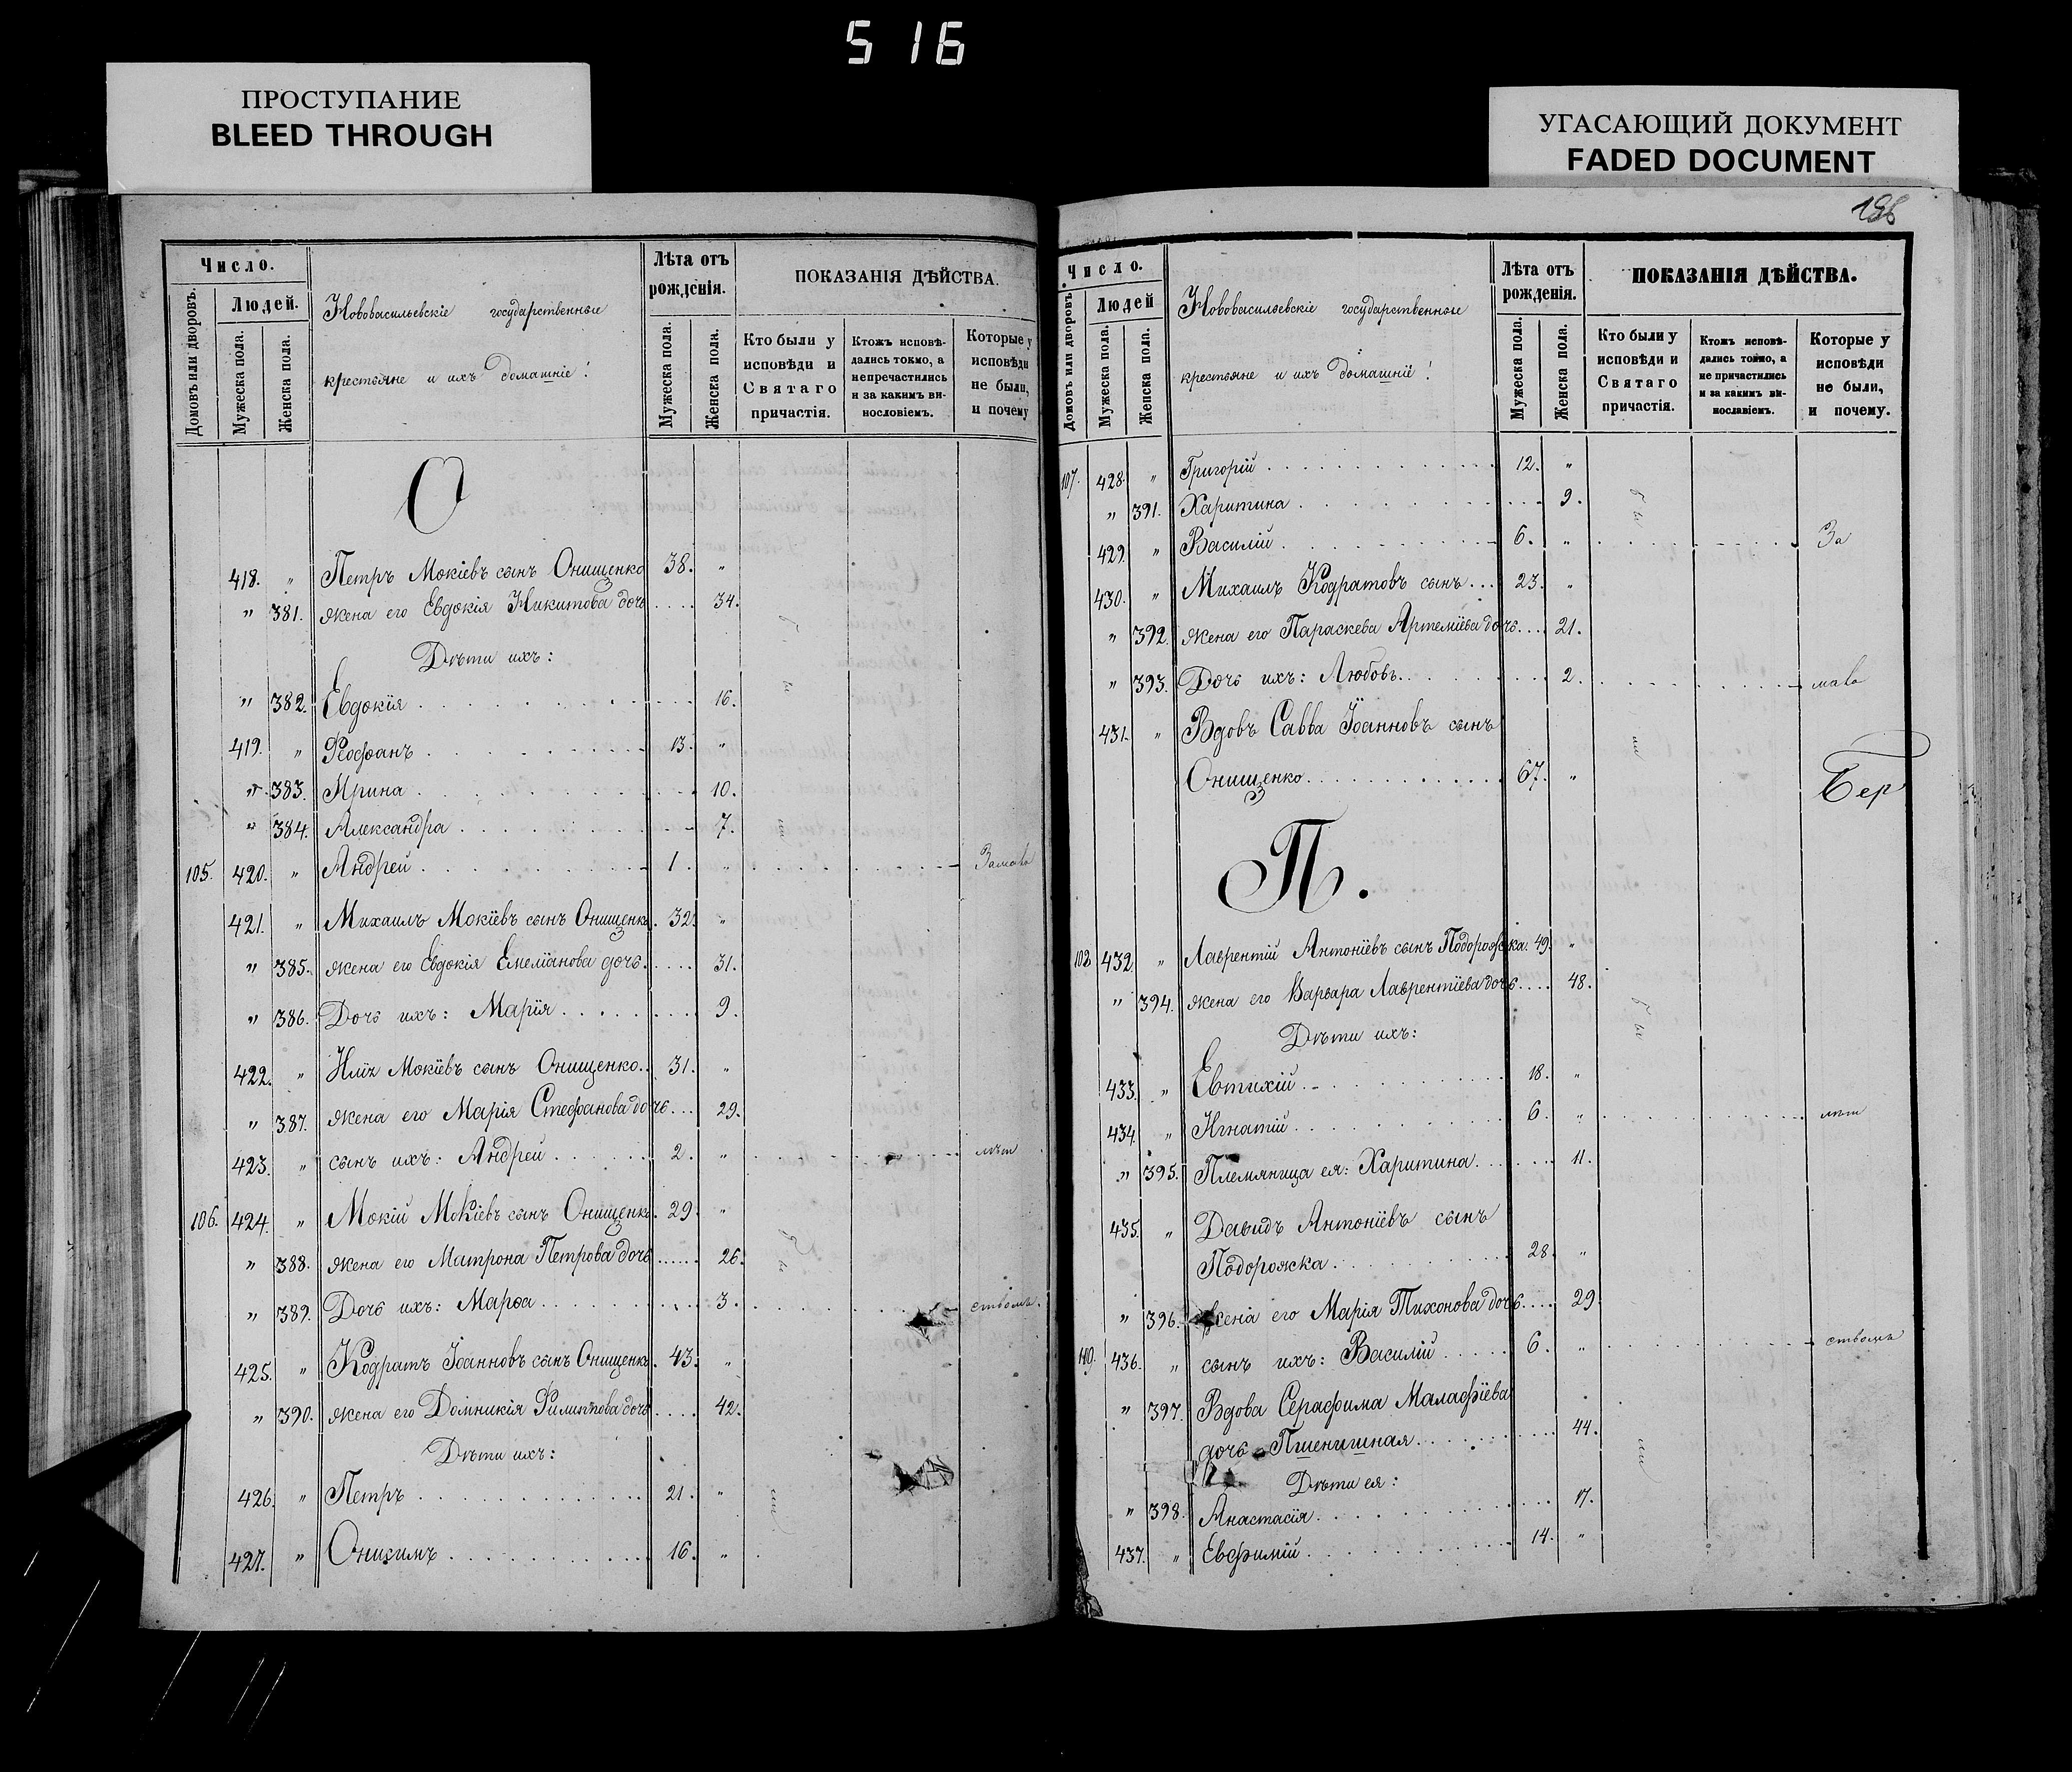 516
ПРОСТУПАНИЕ
BLEED THROUGH
УГАСАЮЩИЙ ДОКУМЕНТ
FADED DOCUMENT
Число.
Домовъ или дворовъ.
Людей.
Мужеска пола.
Женска пола.
Нововасильевскіе государственные
крестьяне и ихъ домашніе!
Лѣта отъ
рожденія.
Мужеска пола.
Женска пола.
ПОКАЗАНІЯ ДѢЙСТВА.
Кто были у
исповѣди и
Святаго
причастія.
Ктожъ исповѣ-
дались токмо, а
непречастились
и за какимъ ви-
нословіемъ.
Которые у
исповѣди
не были,
и почему
О
418. " Петръ Мокіевъ сынъ Онищенко 38. "
" 381. жена его Евдокія Никитова дочь 34.
Дѣти ихъ:
" 382. Евдокія 16.
419. " Феофанъ 13. "
" 383. Ирина 10.
" 384. Александра 7.
105. 420. " Андрей 1. " Замало
421. " Михаилъ Мокіевъ сынъ Онищенко 32. "
" 385. жена его Евдокія Емеліанова дочь. 31.
" 386. Дочь ихъ: Марія 9.
422. " Илія Мокіевъ сынъ Онищенко 31. "
" 387. жена его Марія Стефанова дочь 29.
423. " сынъ ихъ: Андрей 2. " лѣт
106. 424. " Мокій Мокіевъ сынъ Онищенко 29. "
" 388. жена его Матрона Петрова дочь 26.
" 389. Дочь ихъ: Марѳа 3. ствомъ.
425. " Кодратъ Іоанновъ сынъ Онищенко 43. "
" 390. жена его Домникія Филиппова дочь 42.
Дѣти ихъ:
426. " Петръ 21. "
427. " Онисимъ 16. "
бы
ли
бы
ли
Число.
Домовъ или дворовъ.
Людей
Мужеска пола.
Женска пола.
Нововасильевскіе государственные
крестьяне и ихъ домашніе!
Лѣта отъ
рожденія.
Мужеска пола.
Женска пола.
ПОКАЗАНІЯ ДѢЙСТВА.
Кто были у
исповѣди и
Святаго
причастія.
Ктожъ исповѣ-
дались токмо, а
не причастились
и за какимъ ви-
нославіемъ.
Которые у
исповѣди
не были,
и почему.
107. 428. " Григорій 12. "
" 391. Харитина 9.
429. " Василій 6. " За
430. " Михаилъ Кодратовъ сынъ 23. "
" 392. жена его Параскева Артеміева дочь 21.
" 393. Дочь ихъ: Любовь 2. мало
431. " Вдовъ Савва Іоанновъ сынъ
Онищенко 67. "
Бер
П.
102 432. " Лаврентій Антоніевъ сынъ Подорожка. 49. "
" 394. жена его Варвара Лаврентіева дочь 48.
Дѣти ихъ:
433. " Евтихій 18. "
434. " Игнатій 6. " лѣт
" 395. Племяница ея: Харитина 11.
435. " Давидъ Антоніевъ сынъ
Подорожка 28. "
" 396. жена его Марія Тихонова дочь 29.
436. " сынъ ихъ: Василій 6. " ствомъ
" 397. Вдова Серафима Малафіева
дочь Пшенишная 44.
Дѣти ея:
" 398. Анастасія 17.
437. " Евфимій 14. "
бы
ли
бы
ли